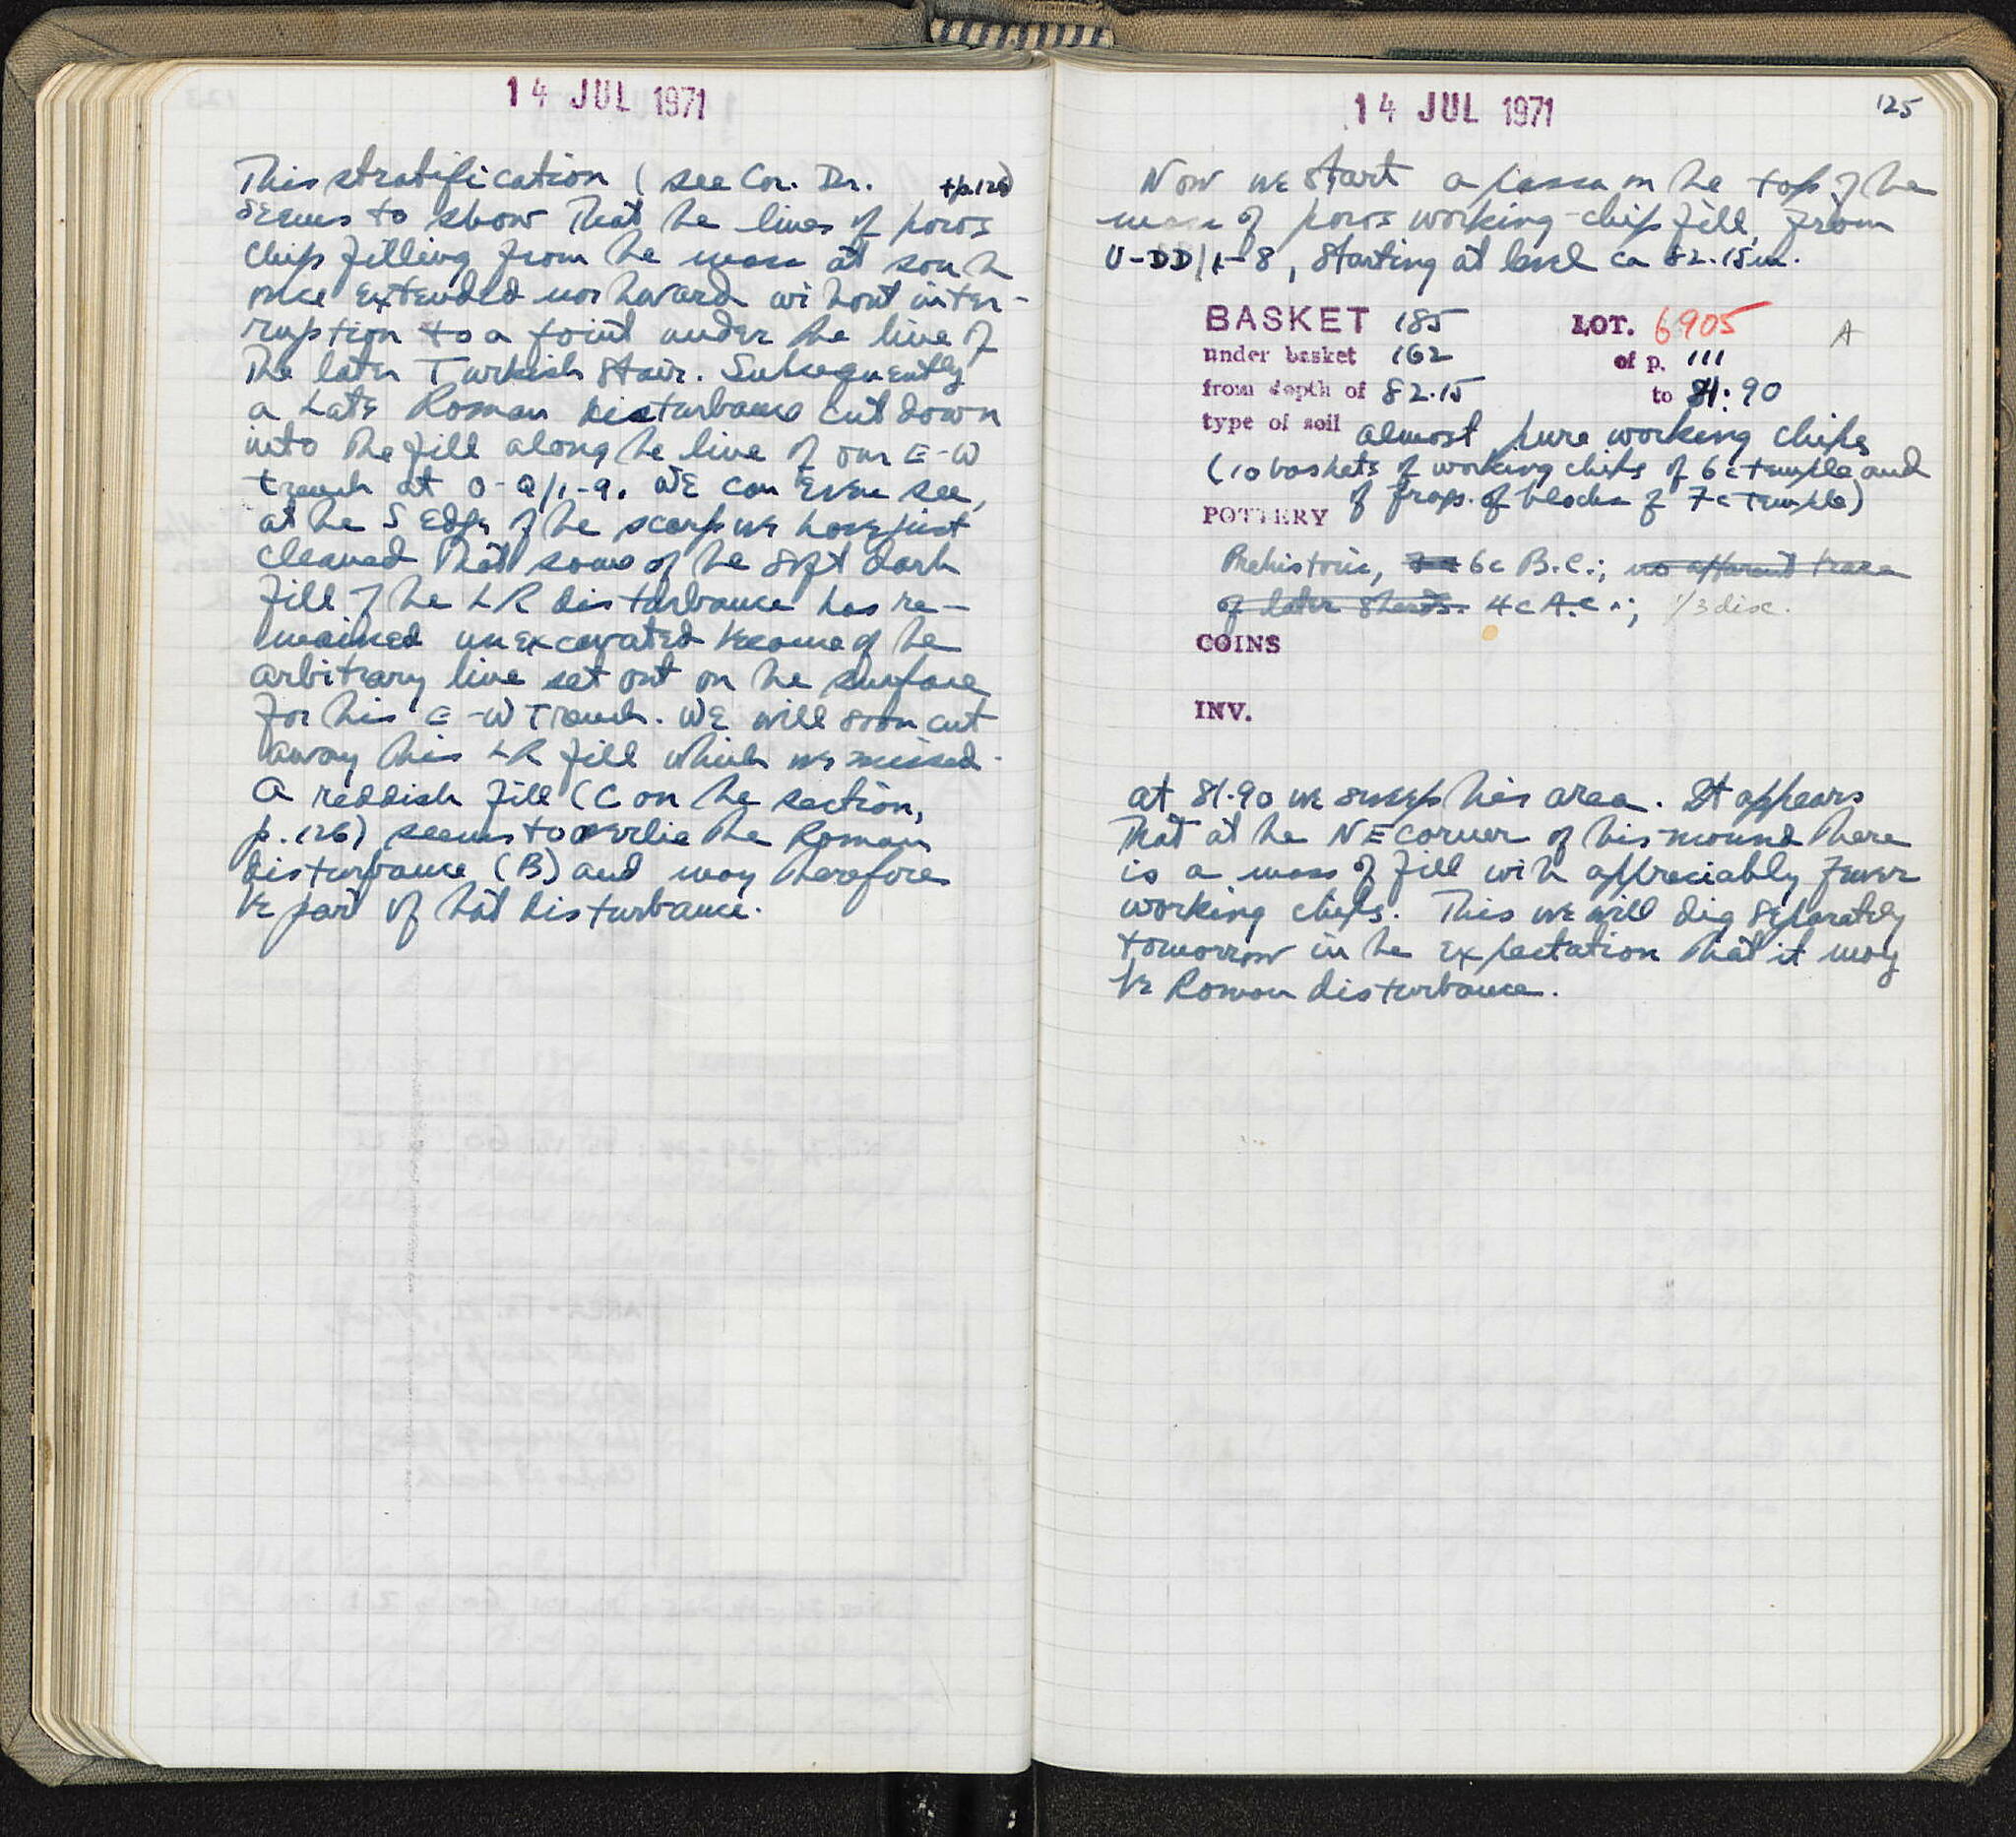 14 JUL 1971
This stratification (see Cor. Dr. + p. 126)
seems to show that the lines of poros
chip filling from the mass at south
once extended northward without inter-
ruption to a point under the line of
the later Turkish stair. Subsequently
a Late Roman disturbance cut down
into the fill along the line of our E-W
trench at O-Q/1-9. We can even see,
at the S edge of the scarp we have just
cleaned that some of the soft dark
fill of the LR disturbance has re-
mained unexcavated because of the
arbitrary line set out on the surface
for this E-W trench. We will soon cut
away this LR fill which we missed.
A reddish fill (C on the section,
p. 126) seems to overlie the Roman
disturbance (B) and may therefore
be part of that disturbance.
14 JUL 1971
125
Now we start a passa on the top of the
mass of poros working-chip fill, from
U-DD/1-8, starting at level ca 82.15m.
BASKET 185 LOT. 6905 A
under basket 162 of p. 111
from depth of 82.15 to 81.90
type of soil almost pure working chips
(10 baskets of working chips of 6c temple and
of frags. of blocks of 7c temple)
POTTERY
Prehistoric, 6c B.C.; no apparent trace
of later sherds. 4c A.C.; 1/3 disc.
COINS
INV.
at 81.90 we sweep this area. It appears
that at the NE corner of this mound there
is a mass of fill with appreciably fewer
working chips. This we will dig separately
tomorrow in the expectation that it may
be Roman disturbance.